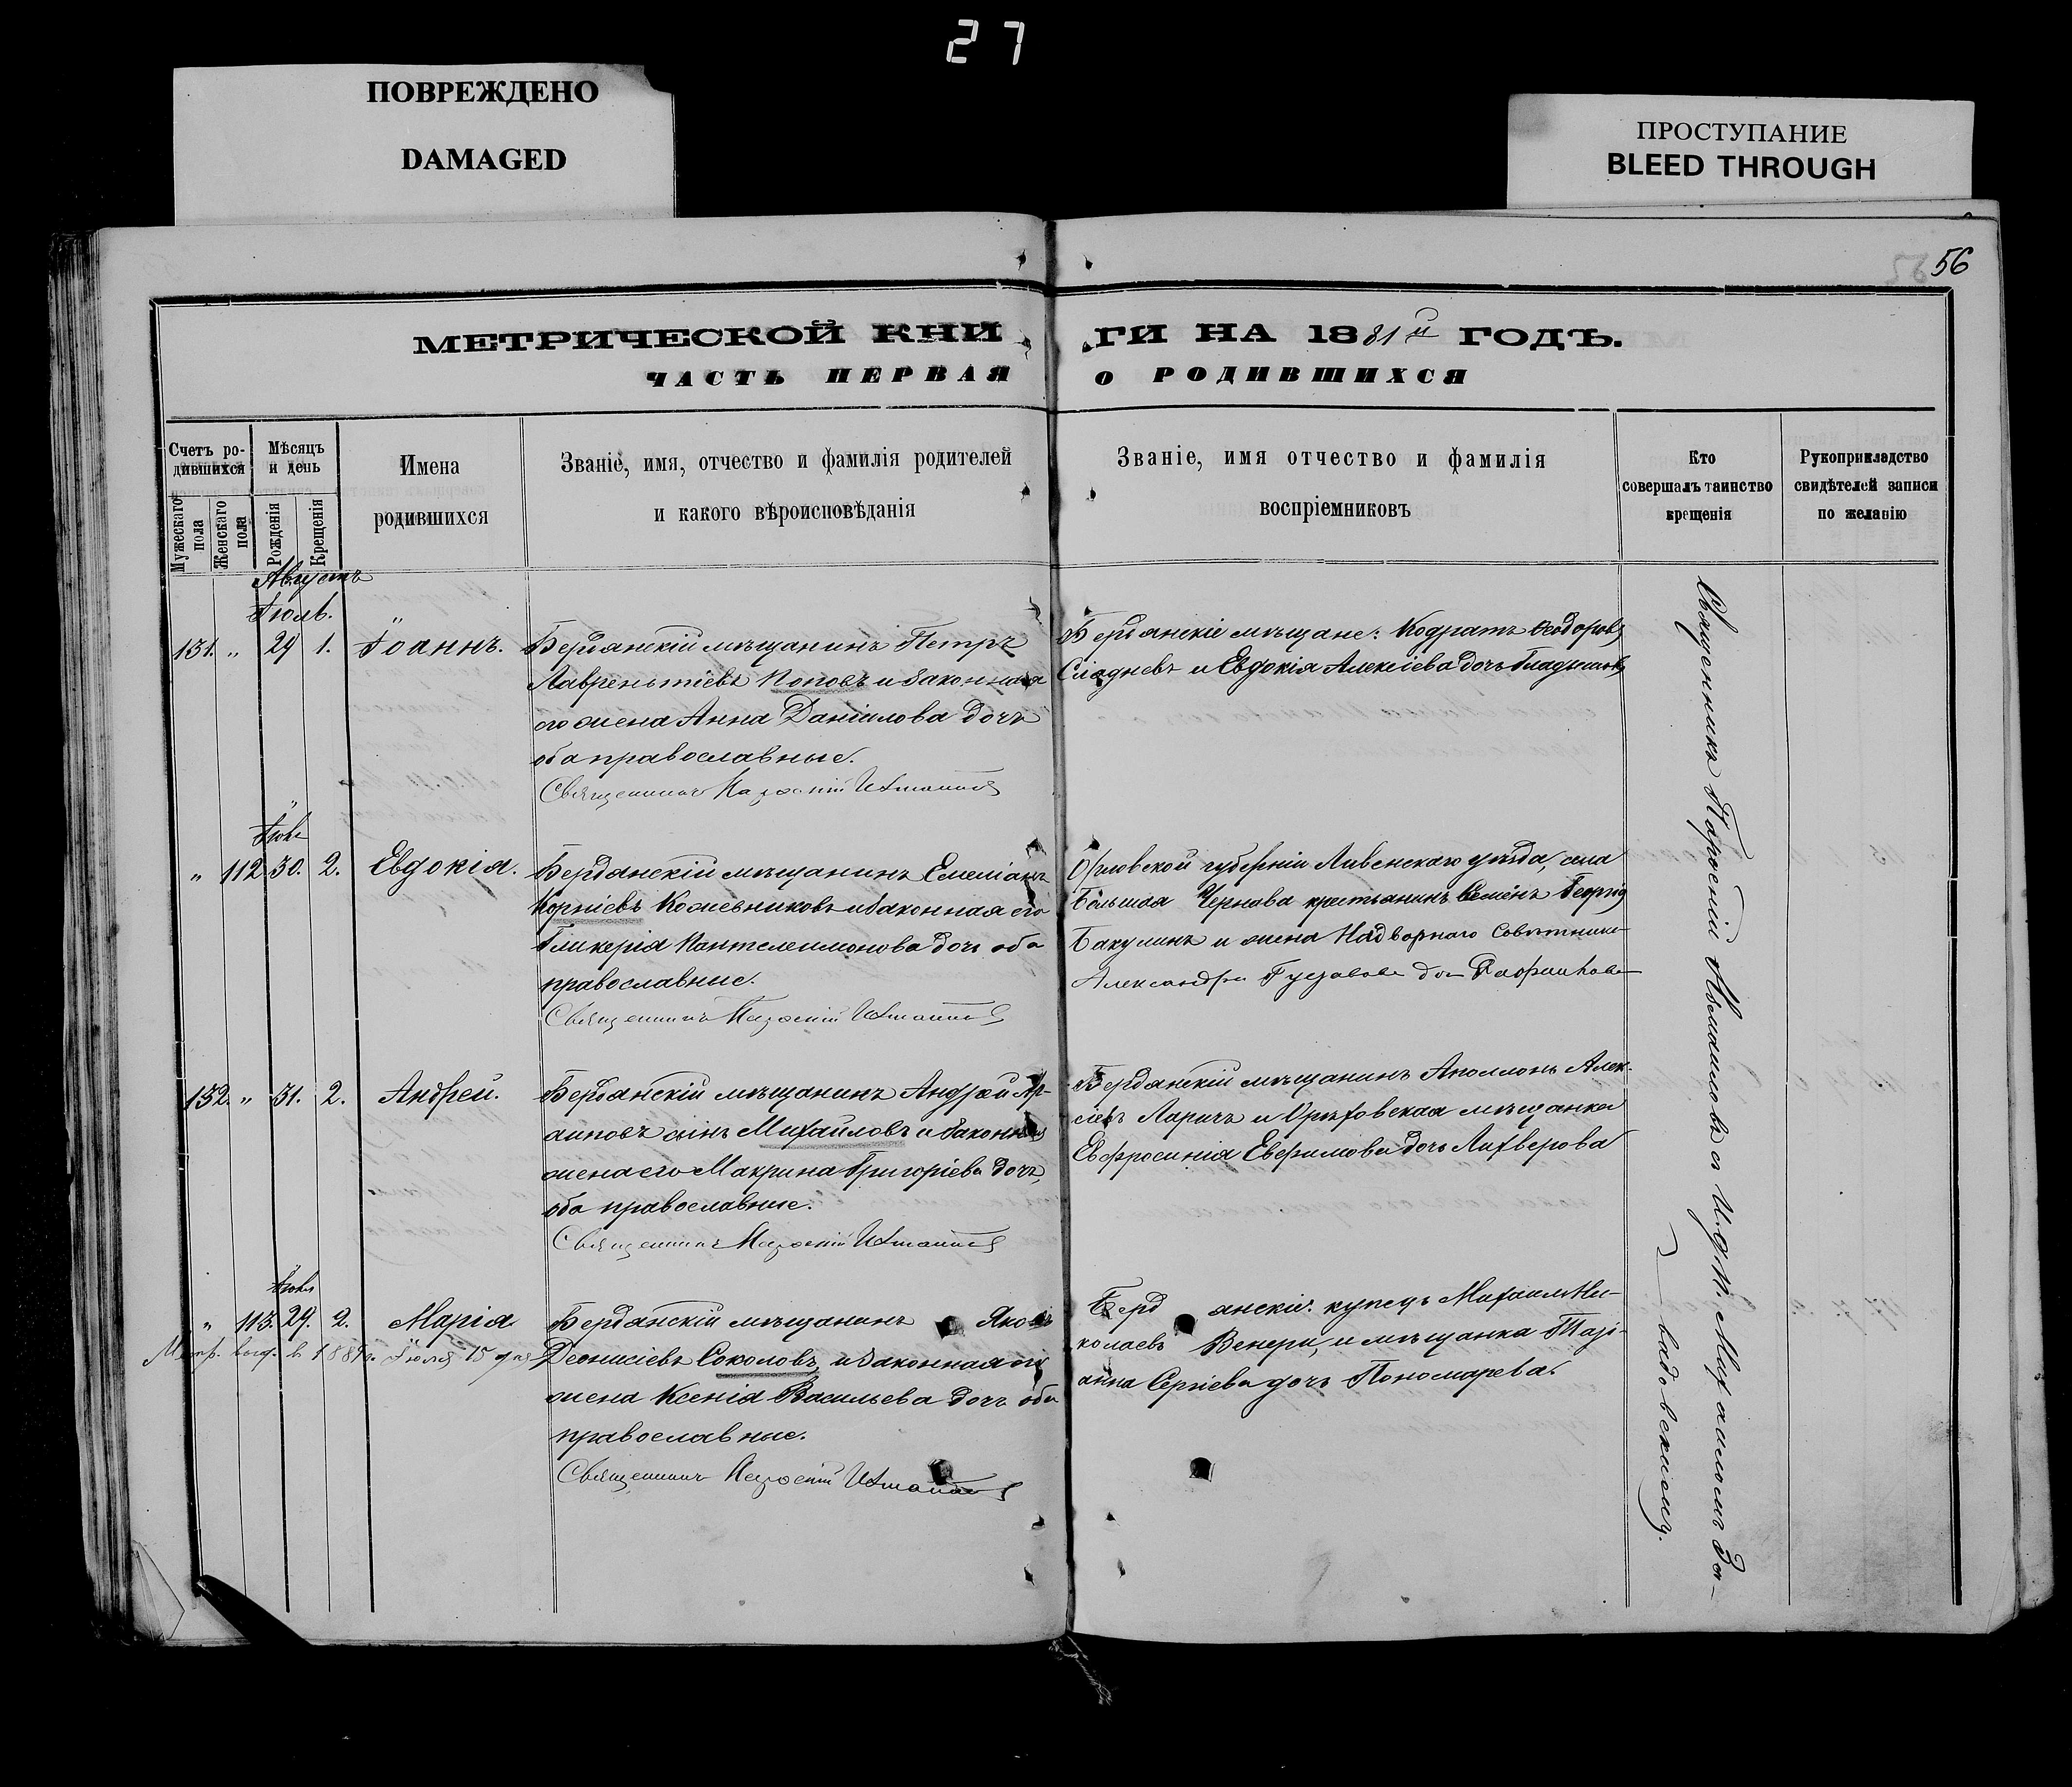 27
ПОВРЕЖДЕНО
DAMAGED
ПРОСТУПАНИЕ
BLEED THROUGH
56
МЕТРИЧЕСКОЙ КНИГИ НА 1881й ГОДЪ.
ЧАСТЬ ПЕРВАЯ О РОДИВШИХСЯ
Счетъ ро-
дившихся
Мужескаго
пола
Женскаго
пола
Мѣсяцъ
и день
Рожденія
Крещенія
Имена
родившихся
Званіе, имя, отчество и фамилія родителей
и какого вѣроисповѣданія
Званіе, имя отчество и фамилія
воспріемниковъ
Кто
совершалъ таинство
крещенія
Рукоприкладство
свидѣтелей записи
по желанію
Августъ
Іюль.
131. " 29 1. Іоаннъ.
Бердянскій мѣщанинъ Петръ
Лаврентіевъ Поповъ и законная
его жена Анна Даніилова дочь
оба православные.
Священникъ
Бердянскіе мѣщане: Кодратъ Ѳеодоровъ
и Евдокія Алексіева дочь
" 112 30. 2. Евдокія.
Бердянскій мѣщанинъ Емеліанъ
Корніевъ Кожевниковъ и законная его
Гликерія Пантелеимонова дочь оба
православные.
Священникъ
Орловской губерніи Ливенскаго уѣзда, села
Большая Чернова крестьянинъ Семенъ
Бакулинъ и жена Надворнаго Совѣтника
Александра дочь
132. " 31. 2. Андрей.
Бердянскій мѣщанинъ Андрей
сынъ Михайловъ и законная
жена его Макрина Григоріева дочь,
оба православные.
Священникъ
Бердянскій мѣщанинъ Аполлонъ Алек-
сіевъ Ларичъ и Орѣховская мѣщанка
Евфросинія Евфимова дочь Лихверова
" 113. 29. 2. Марія.
Метр. выд. в Іюля 15 дня
Бердянскій мѣщанинъ Яковъ
Деонисіевъ Соколовъ, и законная его
жена Ксенія Васильева дочь оба
православные.
Священникъ
Бердянскій купецъ Михаилъ Ни-
колаевъ Венери, и мѣщанка Таті-
анна Сергіева дочь Пономарева.
Священникъ съ Михаиломъ За-
вадовскимъ.